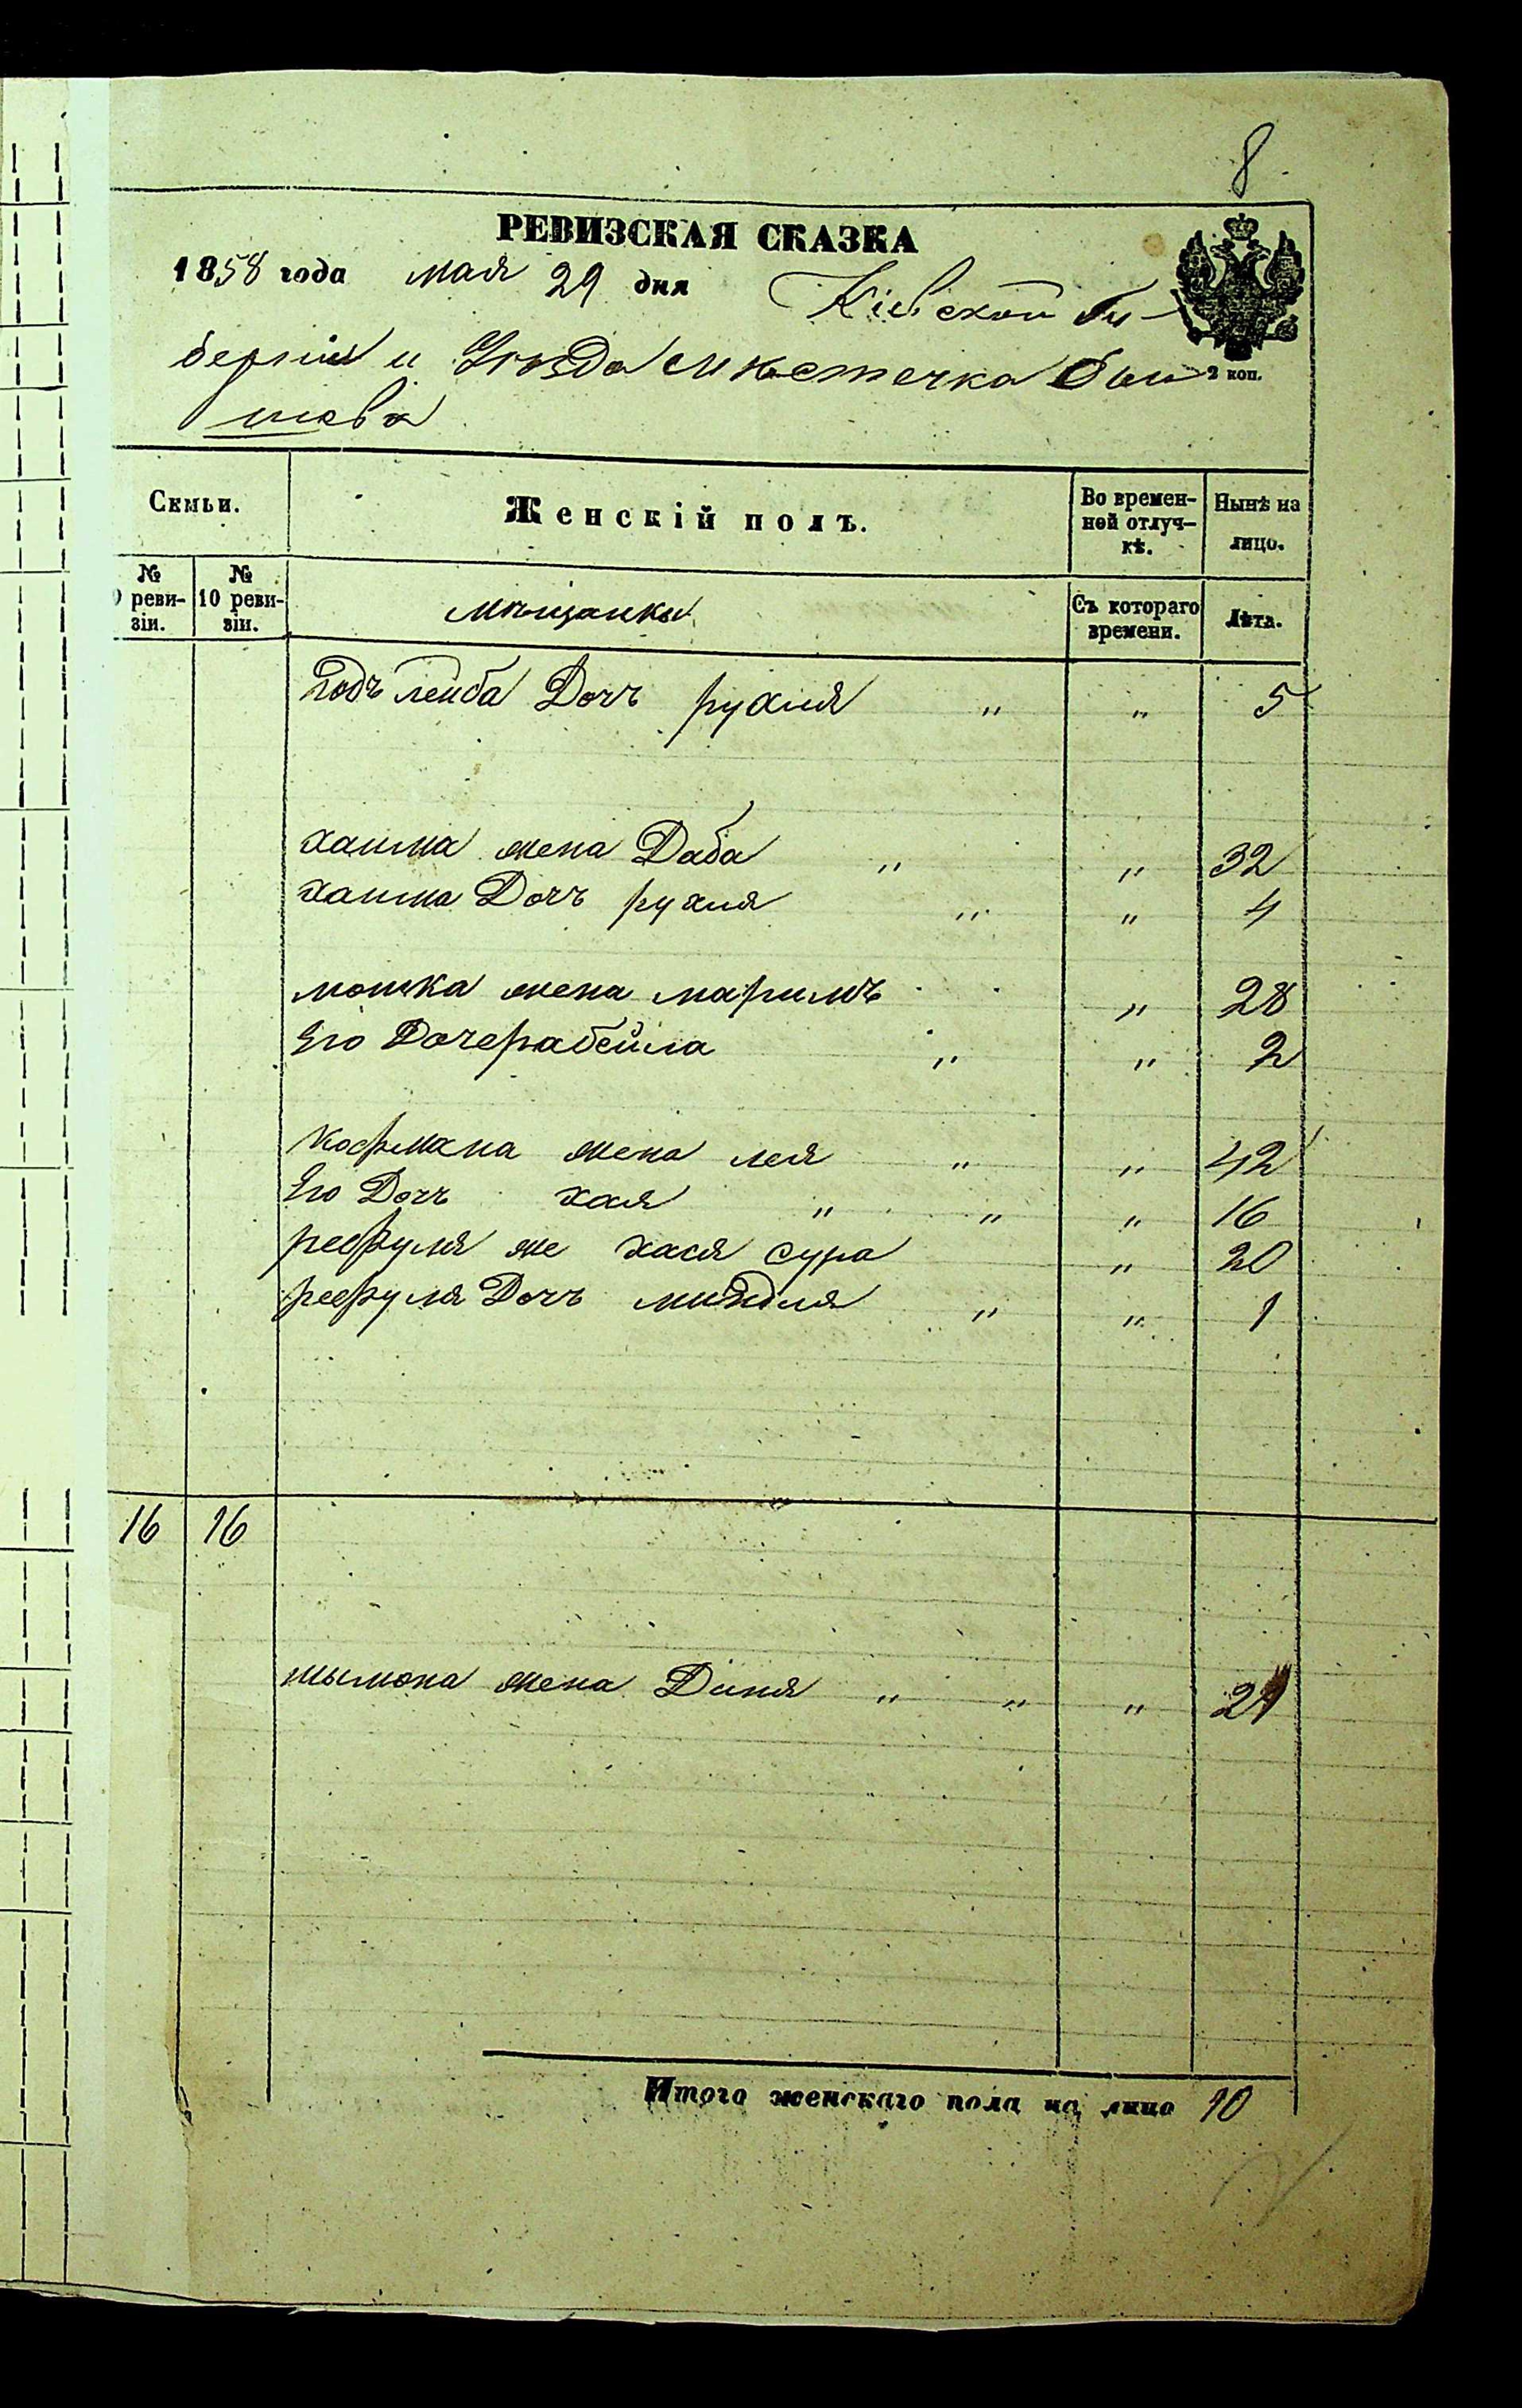 8
РЕВИЗСКАЯ СКАЗКА
1858 года мая 29 дня Кіевской Гу-
берніи и Уѣзда Мѣстечка Бы
шева
2 коп.
Семьи. Женскій полъ. Во времен-ной отлуч-кѣ. Нынѣ на лицо.
№ реви-зіи. № 10 реви-зіи. мѣщанки Съ котораго времени. Лѣта.
лейба Дочь рухля " " 5
хаима жена Даба " " 32
хаима Дочь рухля " " 4
мошка жена маримъ " 28
Его Дочера бейла " " 2
кофмана жена лея " " 42
Его Дочь хая " " " 16
рефуля же хася сура " 20
рефуля Дочь миндля " " 1
16 16
шымона жена Диня " " "
Итого женскаго пола на лицо 10